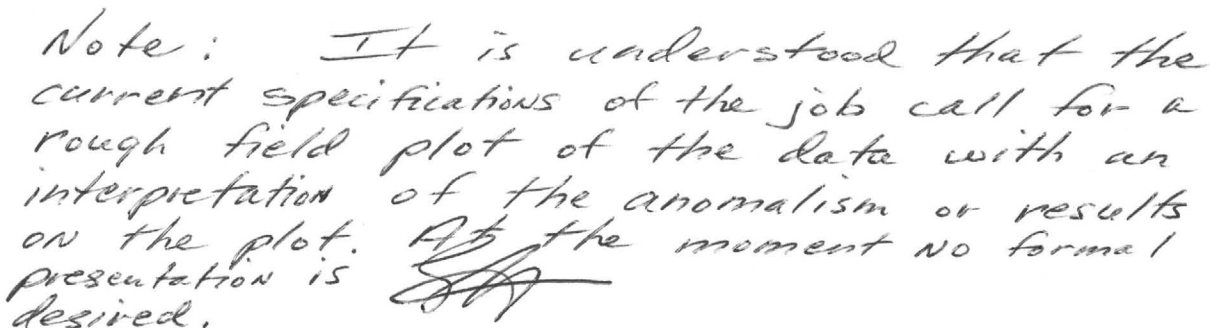 Note: It is understood that the
current specifications of the job call for a
rough field plot of the data with an
interpretation of the anomalism or results
on the plot. At the moment no formal
presentation is
desired.